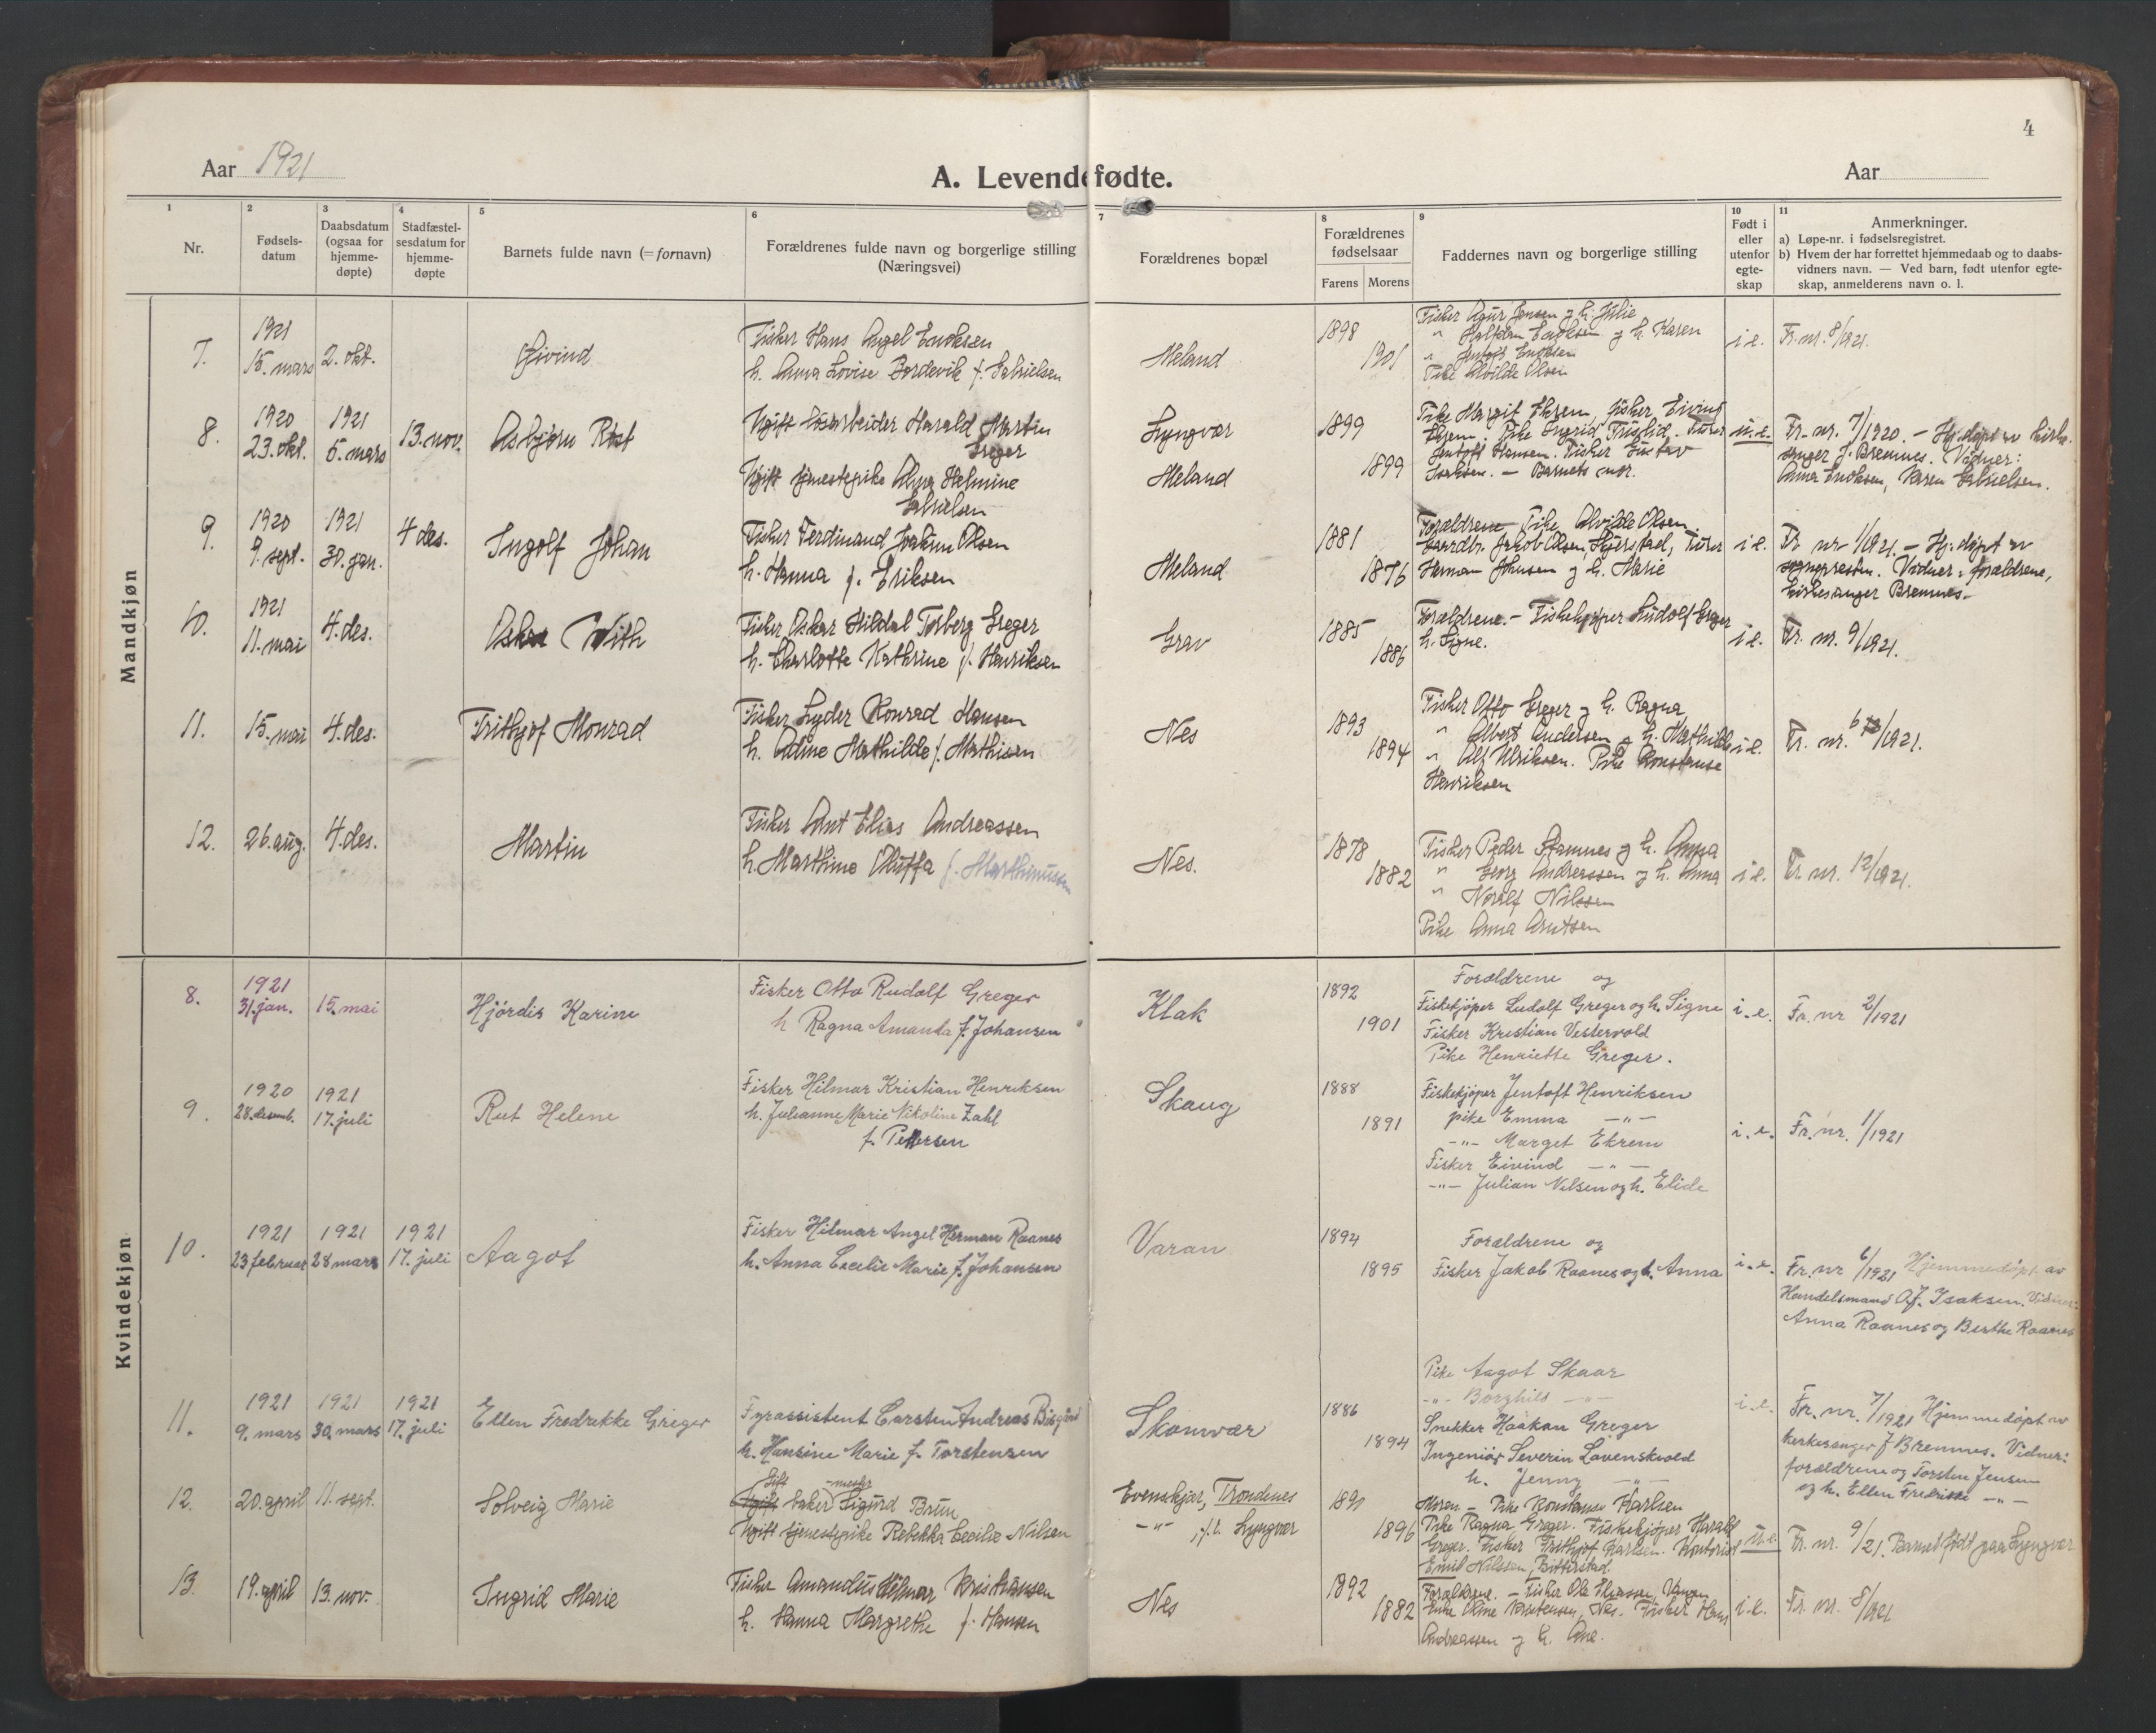 4
Aar 1921
A. Levendefødte.
Aar
1 2 3 4 5 6 7 8 9 10 11
Nr.
Fødsels-
datum
Daabsdatum
(ogsaa for
hjemme-
døpte)
Stadfæstel-
sesdatum for
hjemme-
døpte
Barnets fulde navn (= fornavn)
Forældrenes fulde navn og borgerlige stilling
(Næringsvei)
Forældrenes bopæl
Forældrenes
fødselsaar
Farens Morens
Faddernes navn og borgerlige stilling
Født i
eller
utenfor
egte-
skap
Anmerkninger.
a) Løpe-nr. i fødselsregistret.
b) Hvem der har forrettet hjemmedaab og to daabs-
vidners navn. — Ved barn, født utenfor egte-
skap, anmelderens navn o. l.
Mandkjøn
7.
1921
15. mars
2. okt.
Eivind
Fisker Hans Angel Enoksen
h. Anna Lovise Bordevik f. Gabrielsen
Meland
1898
1901
Fisker Agur Jensen og h. Julie
" Halfdan Enoksen og h. Karen
" Jentoft Enoksen
Pike Alvilde Olsen
i e.
Fr. nr. 8/1921.
8.
1920
23. okt.
1921
6. mars
13. nov.
Asbjørn Rist
Ugift løsarbeider Harald Martin
Greger
Ugift tjenestepike Alma Helmine
Gabrielsen
Lyngvær
Meland
1899
1899
Pike Margit Ekrem, fisker Eivind
Ekrem. Pike Ingrid Fuglid. Fisker
Jentoft Hansen. Fisker Gustav
Isaksen. — Barnets mor.
u. e.
Fr. nr. 7/1920. — Hj. døpt av kirke-
sanger J. Bremnes. Vidner:
Anna Enoksen, Karen Gabrielsen.
9.
1920
9. sept.
1921
30. jan.
4 des.
Ingolf Johan
Fisker Ferdinand Joakim Olsen
h. Hanna f. Eriksen
Meland
1881
1876
Forældrene Pike Alvilde Olsen.
Gaardbr. Jakob Olsen, Hjerstad, Fisker
Herman Johnsen og h. Marie
i e.
Fr nr 1/1921. — Hj. døpt av
sognepresten. Vidner: forældrene,
kirkesanger Bremnes.
10.
1921
11. mai
4. des.
Oskar With
Fisker Oskar Hildal Torberg Greger
h. Charlotte Kathrine f. Henriksen
Grav
1885
1886
Forældrene. — Fiskekjøper Ludolf Greger
h. Signe.
i e.
Fr. nr. 9/1921.
11.
15. mai
4. des.
Frithjof Monrad
Fisker Lyder Konrad Hansen
h. Adine Mathilde f. Mathisen
Nes
1893
1894
Fisker Otto Greger og h. Ragna
" Albert Andersen og h. Mathilde
" Alf Ulriksen. Pike Konstanse
Henriksen
i e.
Fr. nr. 6/1921.
12.
26. aug.
4. des.
Martin
Fisker Arnt Elias Andreassen
h. Marthine Oluffa f. Marthinussen
Nes.
1878
1882
Fisker Peder Stamnes og h. Anna
" Georg Andreassen og h. Anna
" Noralf Nilssen
Pike Anna Arntsen
i e.
Fr. nr. 12/1921.
Kvindekjøn
8.
1921
31. jan.
15. mai
Hjördis Karine
Fisker Otto Rudolf Greger
h Ragna Amanda f. Johansen
Klak
1892
1901
Forældrene og
Fiskekjøper Ludolf Greger og h. Signe
Fisker Kristian Vestervold
Pike Henriette Greger.
i. e.
Fr. nr 2/1921
9.
1920
28. desemb.
1921
17. juli
Rut Helene
Fisker Hilmar Kristian Henriksen
h. Julianne Marie Nikoline Zahl
f. Pettersen
Skaug
1888
1891
Fiskekjøper Jentoft Henriksen
pike Emma —"—
—"— Marget Ekrem
Fisker Eivind —"—
—"— Julian Nilsen og h. Elide
i. e.
Fr. nr. 1/1921
10.
1921
23 februar
1921
28 mars
1921
17. juli
Aagot
Fisker Hilmar Angel Herman Raanes
h. Anna Cecelie Marie f. Johansen
Varan
1894
1895
Forældrene og
Fisker Jakob Raanes og h. Anna
i. e.
Fr. nr 6/1921 Hjemmedøpt av
Handelsmand O.J. Isaksen. Vidner:
Anna Raanes og Berthe Raanes
11.
1921
9. mars
1921
30. mars
1921
17. juli
Ellen Fredrikke Greger
Fyrassistent Carsten Andreas Bisgård
h. Hansine Marie f. Torstensen
Skomvær
1886
1894
Pike Aagot Skaar
—"— Borghild —"—
Snekker Haakon Greger
Ingeniør Severin Lovenskiold
h. Jenny —"—
i. e.
Fr. nr. 7/1921 Hjemmedøpt av
kirkesanger J Bremnes. Vidner:
forældrene og Torsten Jensen
og h. Ellen Fredrikke —"—
12.
20. april
11. sept.
Solveig Marie
Gift -mester
Ugift baker Sigurd Brun
Ugift tjenestepike Rebekka Cecilie Nilsen
Evenskjær, Trondenes
—"— Lyngvær
1891
1896
Moren. — Pike Konstanse Karlsen
Pike Ragna Greger. Fiskekjøper Harald
Greger. Fisker Frithjof Karlsen. Kontorist
Emil Nilssen, Bitterstad.
u. e.
Fr. nr. 9/21. Barnet født paa Lyngvær
13.
19. april
13. nov.
Ingrid Marie
Fisker Amandus Hilmar Kristiansen
h. Hanna Margrethe f. Hansen
Nes
1892
1882
Forældrene. — Fisker Ole Eliassen, Vangen
Enke Oline Kristensen, Nes. Fisker Hans
Andreassen og h. Ane.
i. e.
Fr. nr. 8/1921